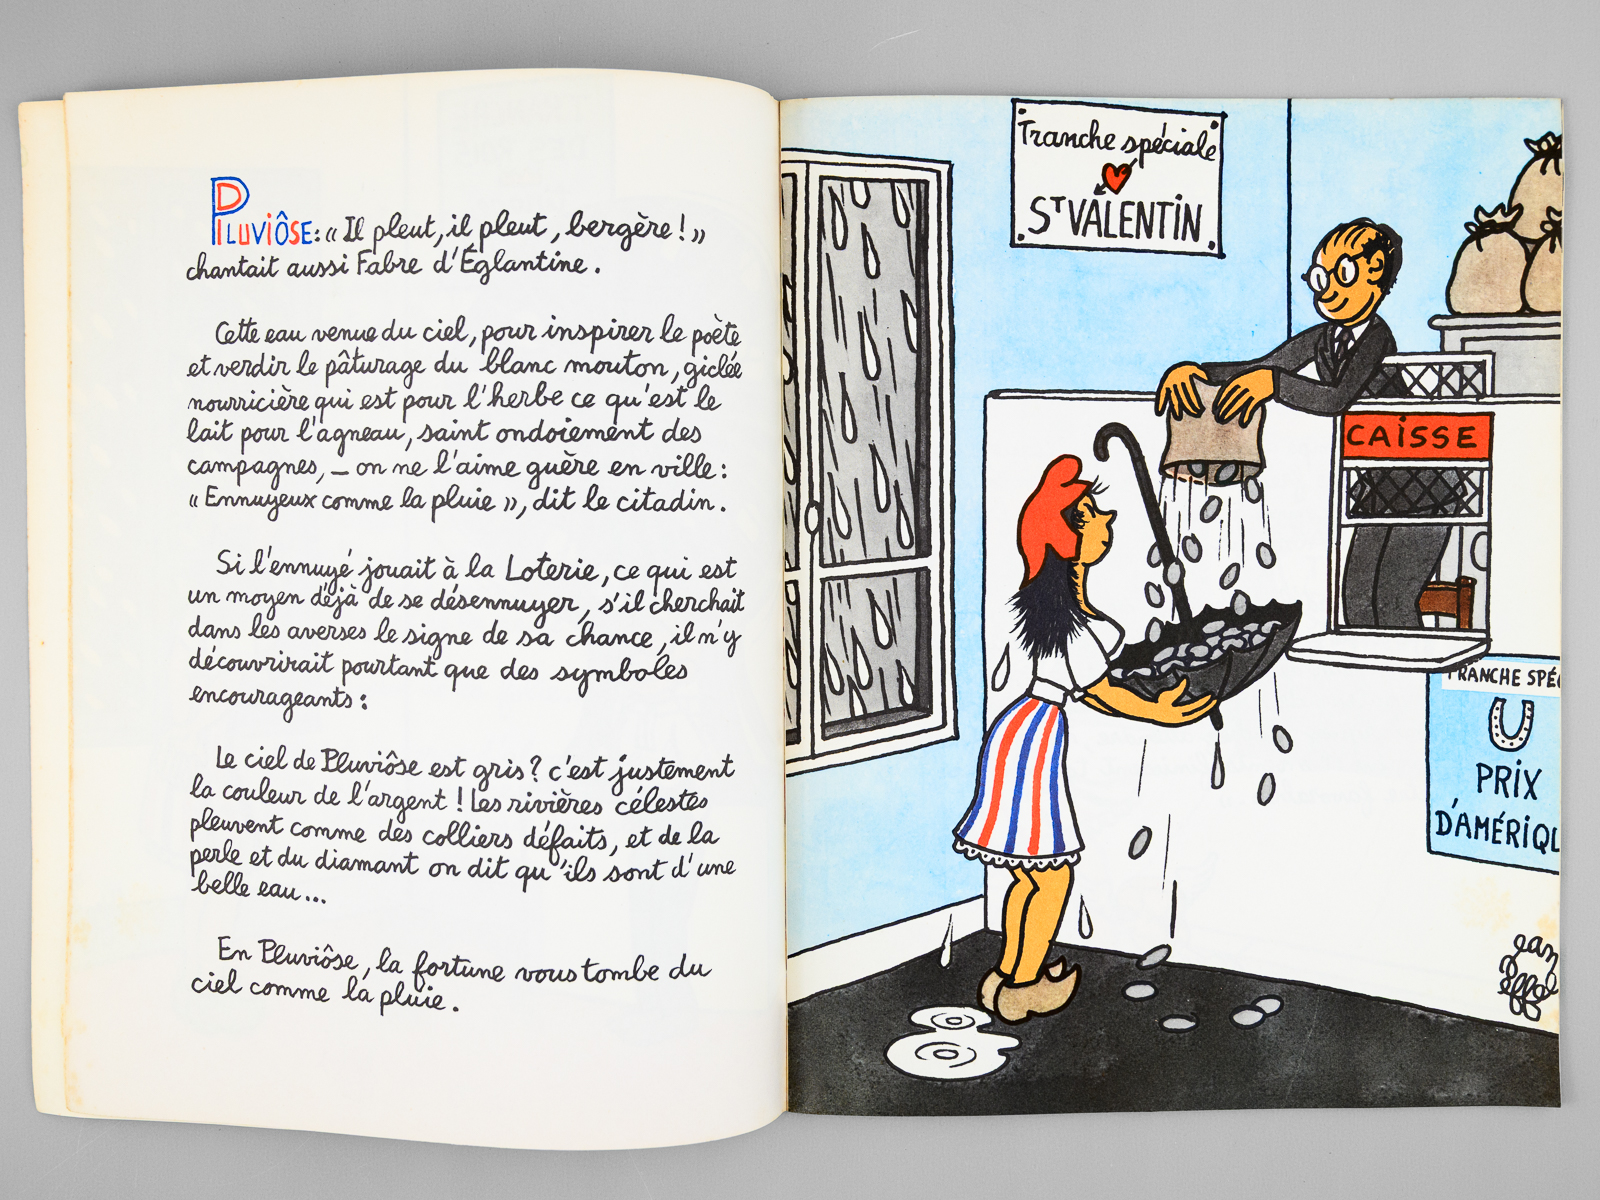 PLUVIÔSE : « Il pleut, il pleut, bergère ! »
chantait aussi Fabre d'Églantine.
Cette eau venue du ciel, pour inspirer le poète
et verdir le pâturage du blanc mouton, giclée
nourricière qui est pour l'herbe ce qu'est le
lait pour l'agneau, saint ondoiement des
campagnes, — on ne l'aime guère en ville :
« Ennuyeux comme la pluie », dit le citadin.
Si l'ennuyé jouait à la Loterie, ce qui est
un moyen déjà de se désennuyer, s'il cherchait
dans les averses le signe de sa chance, il n'y
découvrirait pourtant que des symboles
encourageants :
Le ciel de Pluviôse est gris ? c'est justement
la couleur de l'argent ! Les rivières célestes
pleuvent comme des colliers défaits, et de la
perle et du diamant on dit qu'ils sont d'une
belle eau...
En Pluviôse, la fortune vous tombe du
ciel comme la pluie.
Tranche spéciale
ST VALENTIN
CAISSE
TRANCHE SPÉC
PRIX
D'AMÉRIQU
jean
effel